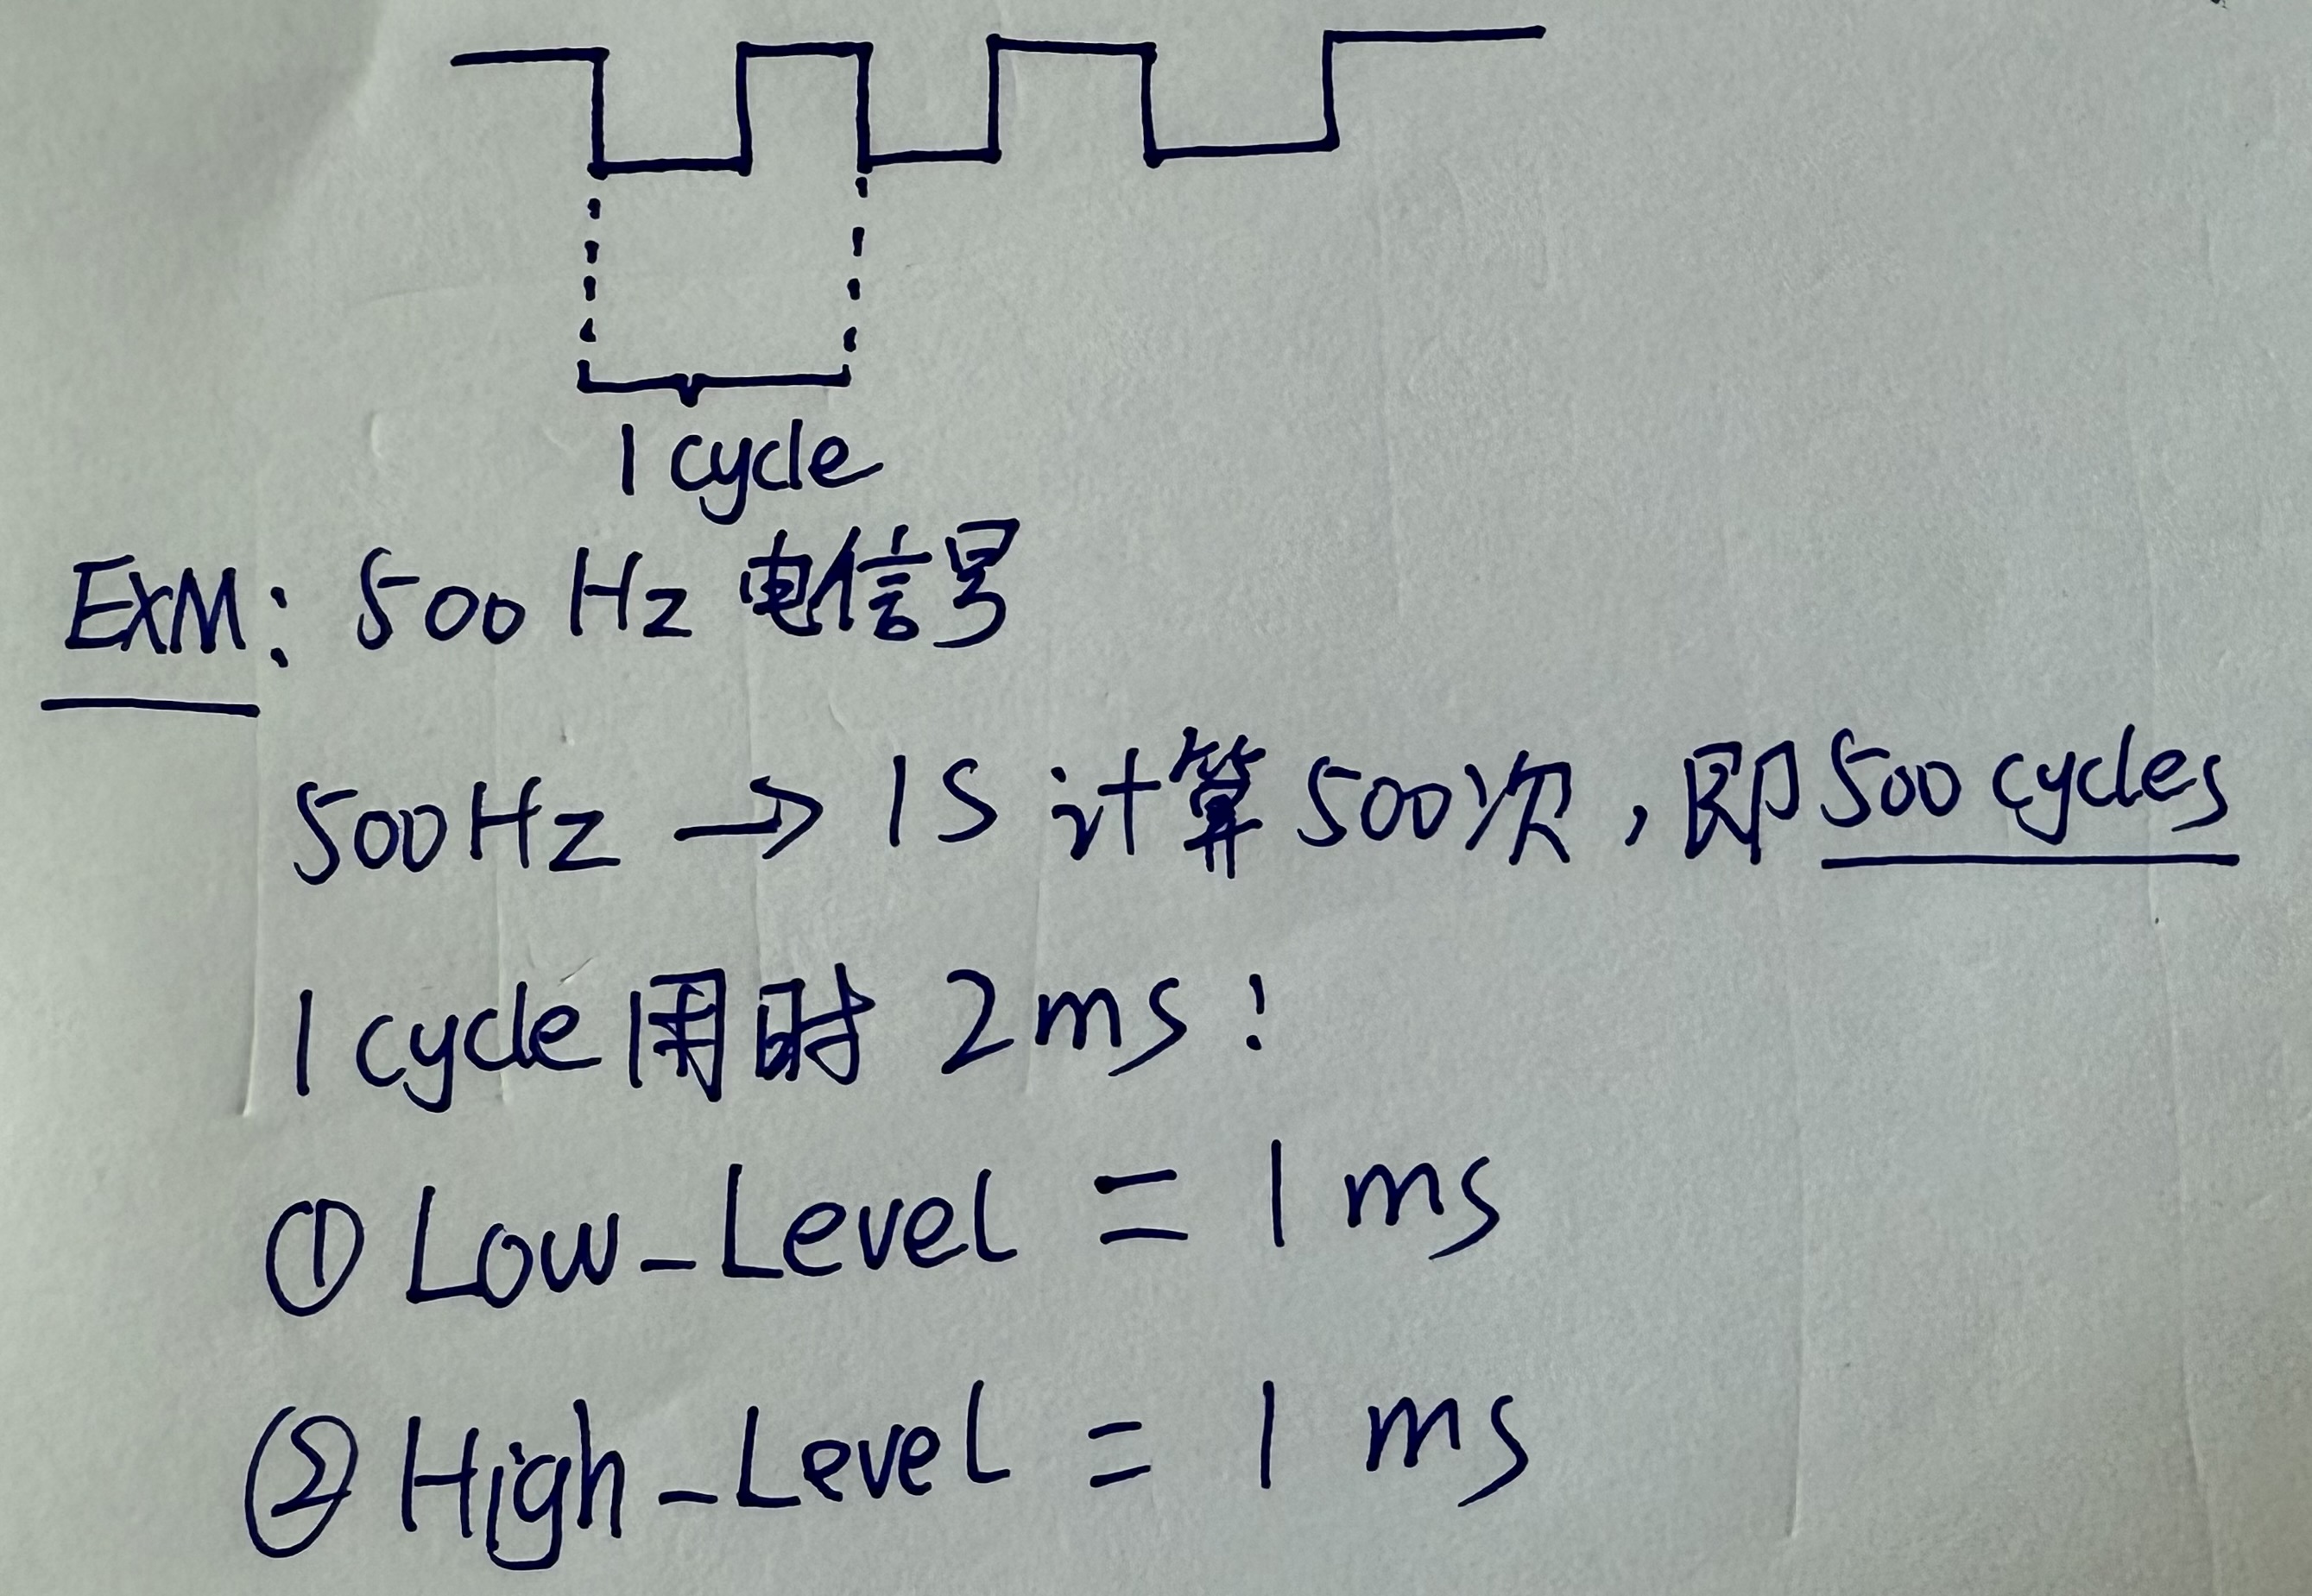 1 cycle
EXM: 500 Hz 电信号
500Hz → 1S 计算500次，即500 cycles
1 cycle 用时 2ms:
① Low_Level = 1 ms
② High_Level = 1 ms